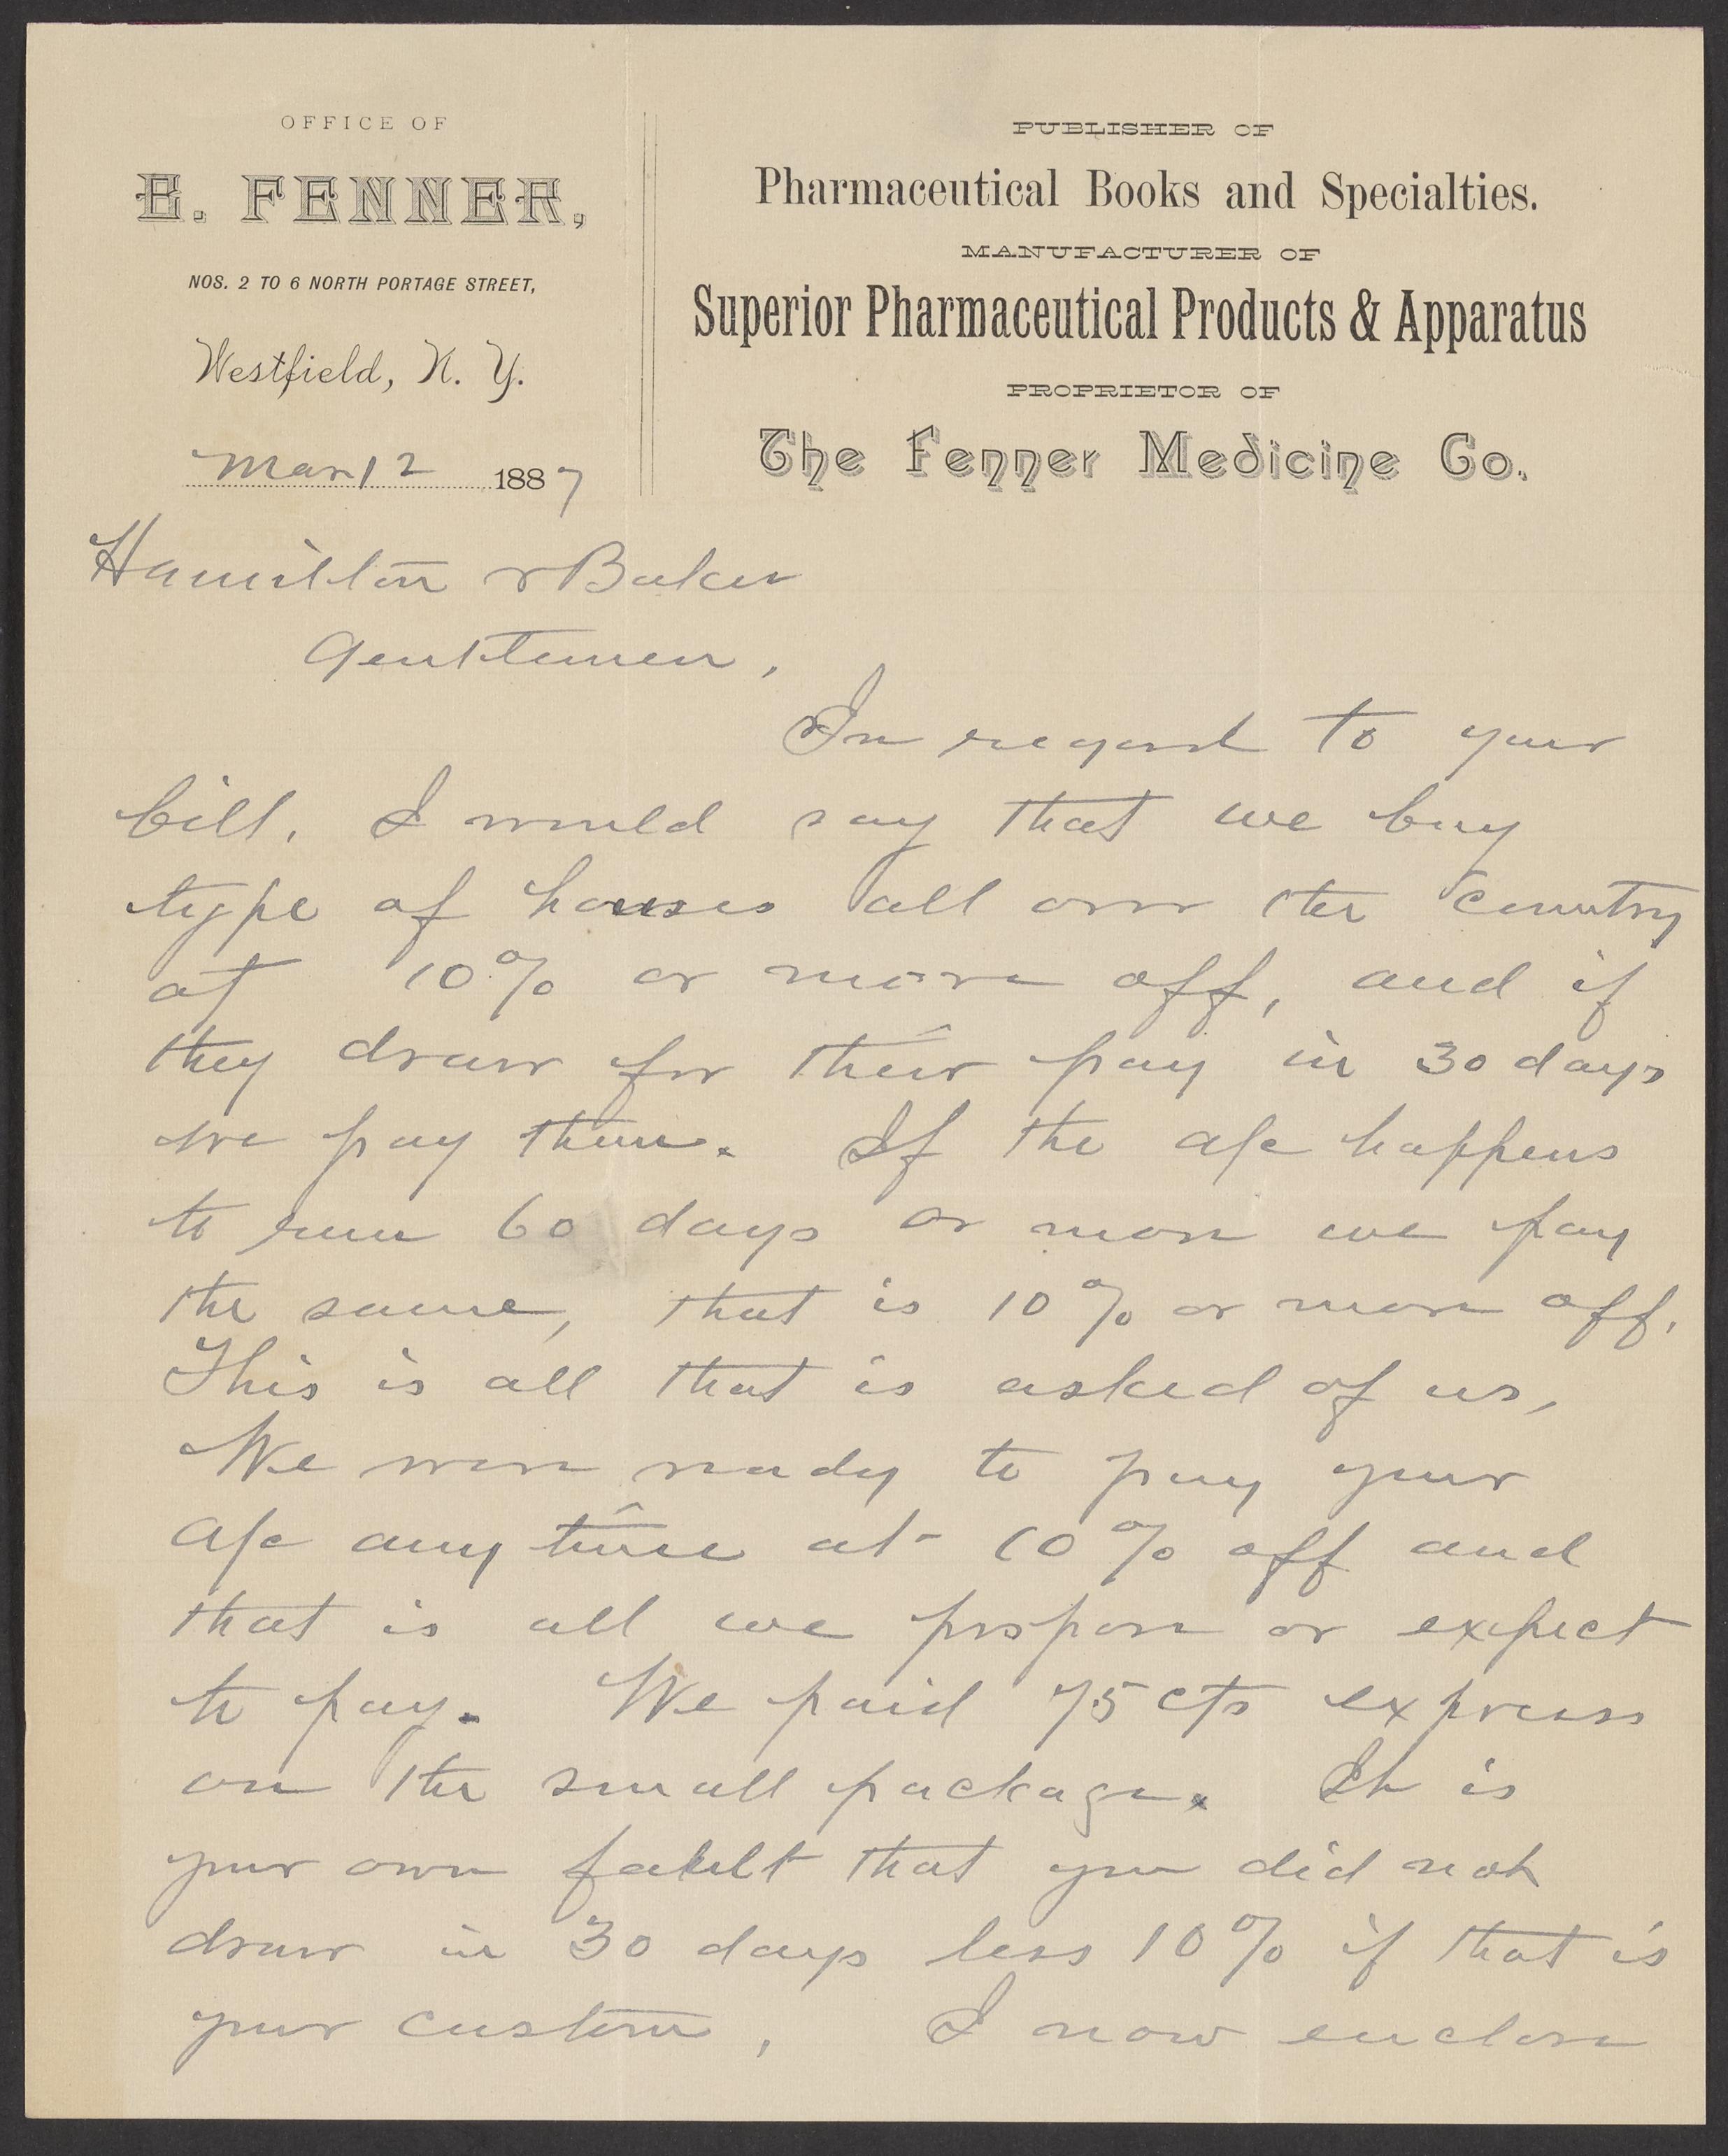 OFFICE OF
B. FENNER,
NOS. 2 TO 6 NORTH PORTAGE STREET,
Westfield, N. Y.
Mar 12 1887
PUBLISHER OF
Pharmaceutical Books and Specialties.
MANUFACTURER OF
Superior Pharmaceutical Products & Apparatus
PROPRIETOR OF
The Fenner Medicine Co.
Hamilton & Baker
Gentlemen,
In regard to your
bill, I would say that we buy
type of houses all over the country
at 10% or more off, and if
they draw for their pay in 30 days
we pay them. If the a/c happens
to run 60 days or more we pay
the same, that is 10% or more off.
This is all that is asked of us,
We were ready to pay your
a/c any time at 10% off and
that is all we propose or expect
to pay. We paid 75 cts express
on the small package. It is
your own fault that you did not
draw in 30 days less 10% if that is
your custom, I now enclose